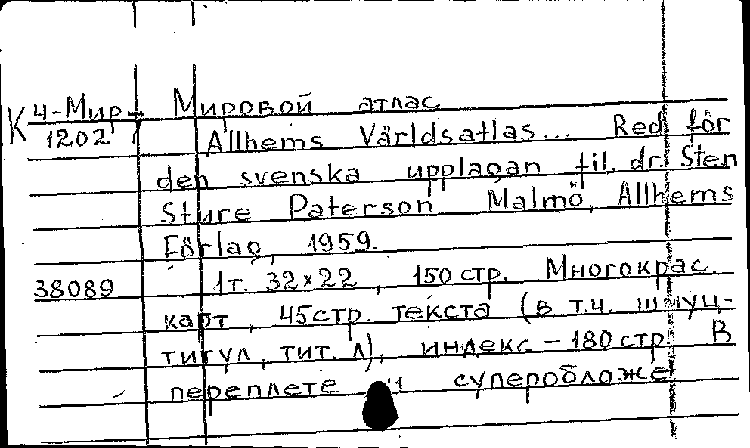 К Ч-Мир Мировой атлас
1202 Allhems Världsatlas... Red för
den svenska upplagan fil. dr. Sten
Sture Paterson Malmö, Allhems
Förlag, 1959.
38089 1т. 32×22, 150 стр. Многокрас.
карт, 45 стр. текста (в т.ч. шмуц-
титул, тит. л), индекс - 180 стр. В
переплете и суперобложе